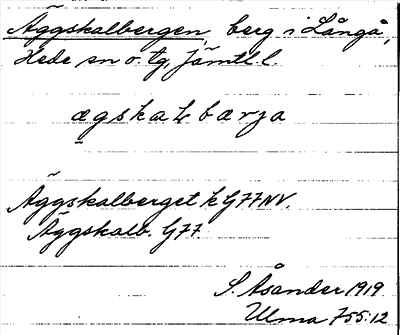 Äggskalbergen, berg i Långå,
Hede sn o. tg, Jämtl. l.
ægskaƚbærja
Äggskalberget k G77NV.
Äggskalb. G77
S. Åsander 1919
Ulma 755:12